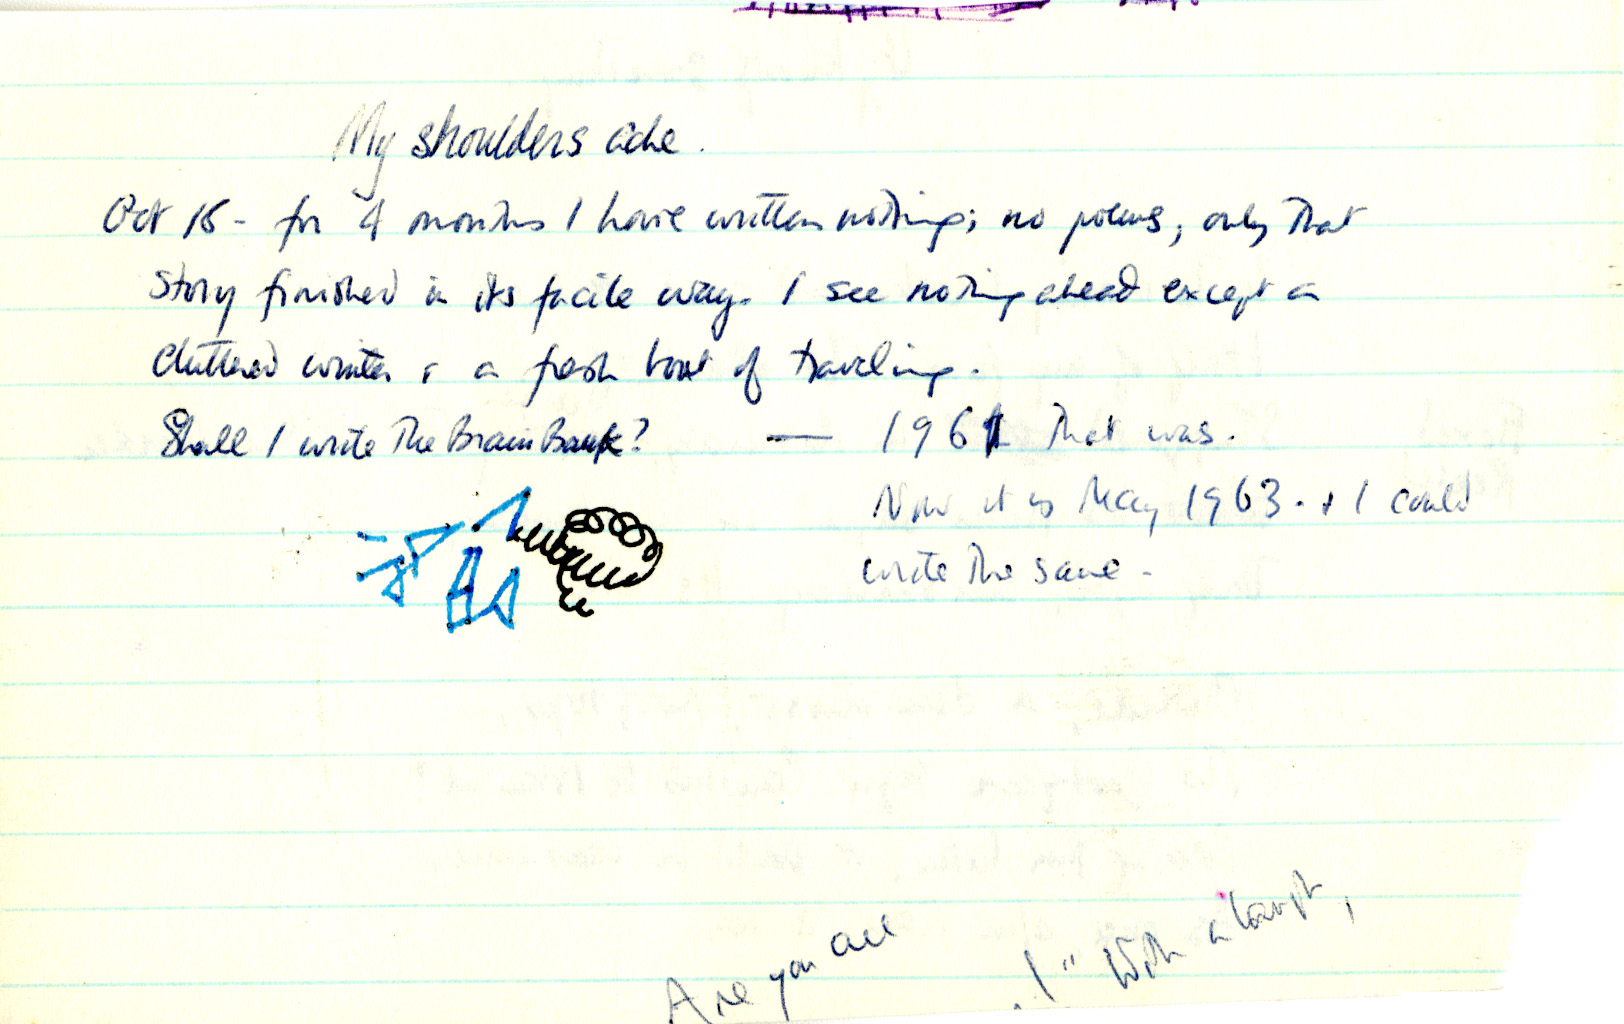 My shoulders ache.
Oct 18 - for 4 months I have written nothing; no poems, only that
story finished in its facile way. I see nothing ahead except a
cluttered winter & a fresh bout of traveling.
Shall I write The Brain Bank? — 1961 that was.
Now it is May 1963. & I could
write the same -
Are you all
!" With a